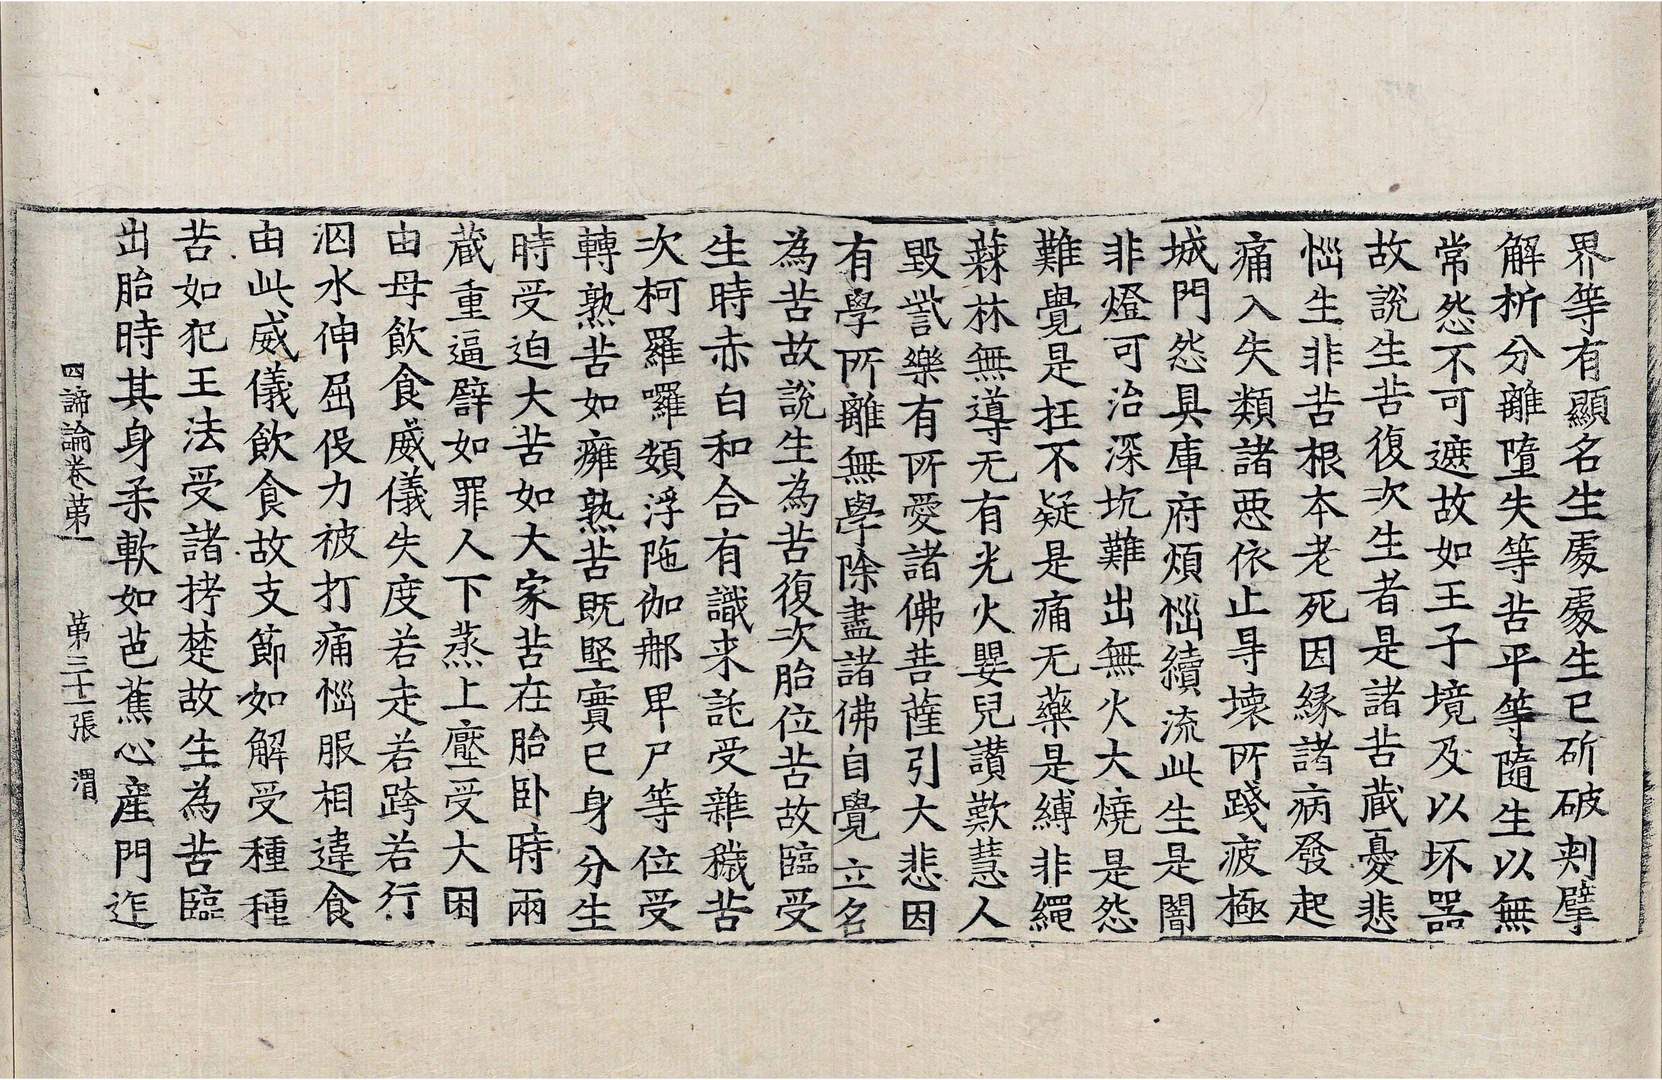 界等有顯名生處處生已斫破剌擘
解析分離墮失等苦平等隨生以無
常怨不可遮故如王子境及以坏器
故說生苦復次生者是諸苦藏憂悲
惱生非苦根本老死因緣諸病發起
痛入失類諸惡依止导壞所踐疲極
城門怨具庫府煩惱續流此生是闇
非燈可治深坑難出無火大燒是怨
難覺是抂不疑是痛无藥是縛非繩
蕀林無導无有光火嬰兒讃歎慧人
毀呰樂有所愛諸佛菩薩引大悲因
有學所離無學除盡諸佛自覺立名
為苦故說生為苦復次胎位苦故臨受
生時赤白和合有識来託受雜穢苦
次柯羅囉頞浮陁伽郍甲尸等位受
轉熟苦如癰熟苦既堅實已身分生
時受迫大苦如大家苦在胎卧時兩
蔵重逼譬如罪人下蒸上壓受大困
由母飲食威儀失度若走若跨若行
泅水伸屈伇力被打痛惱服相違食
由此威儀飲食故支節如解受種種
苦如犯王法受諸拷楚故生為苦臨
出胎時其身柔軟如芭蕉心産門迮
四諦論卷苐一　苐三十二張　渭